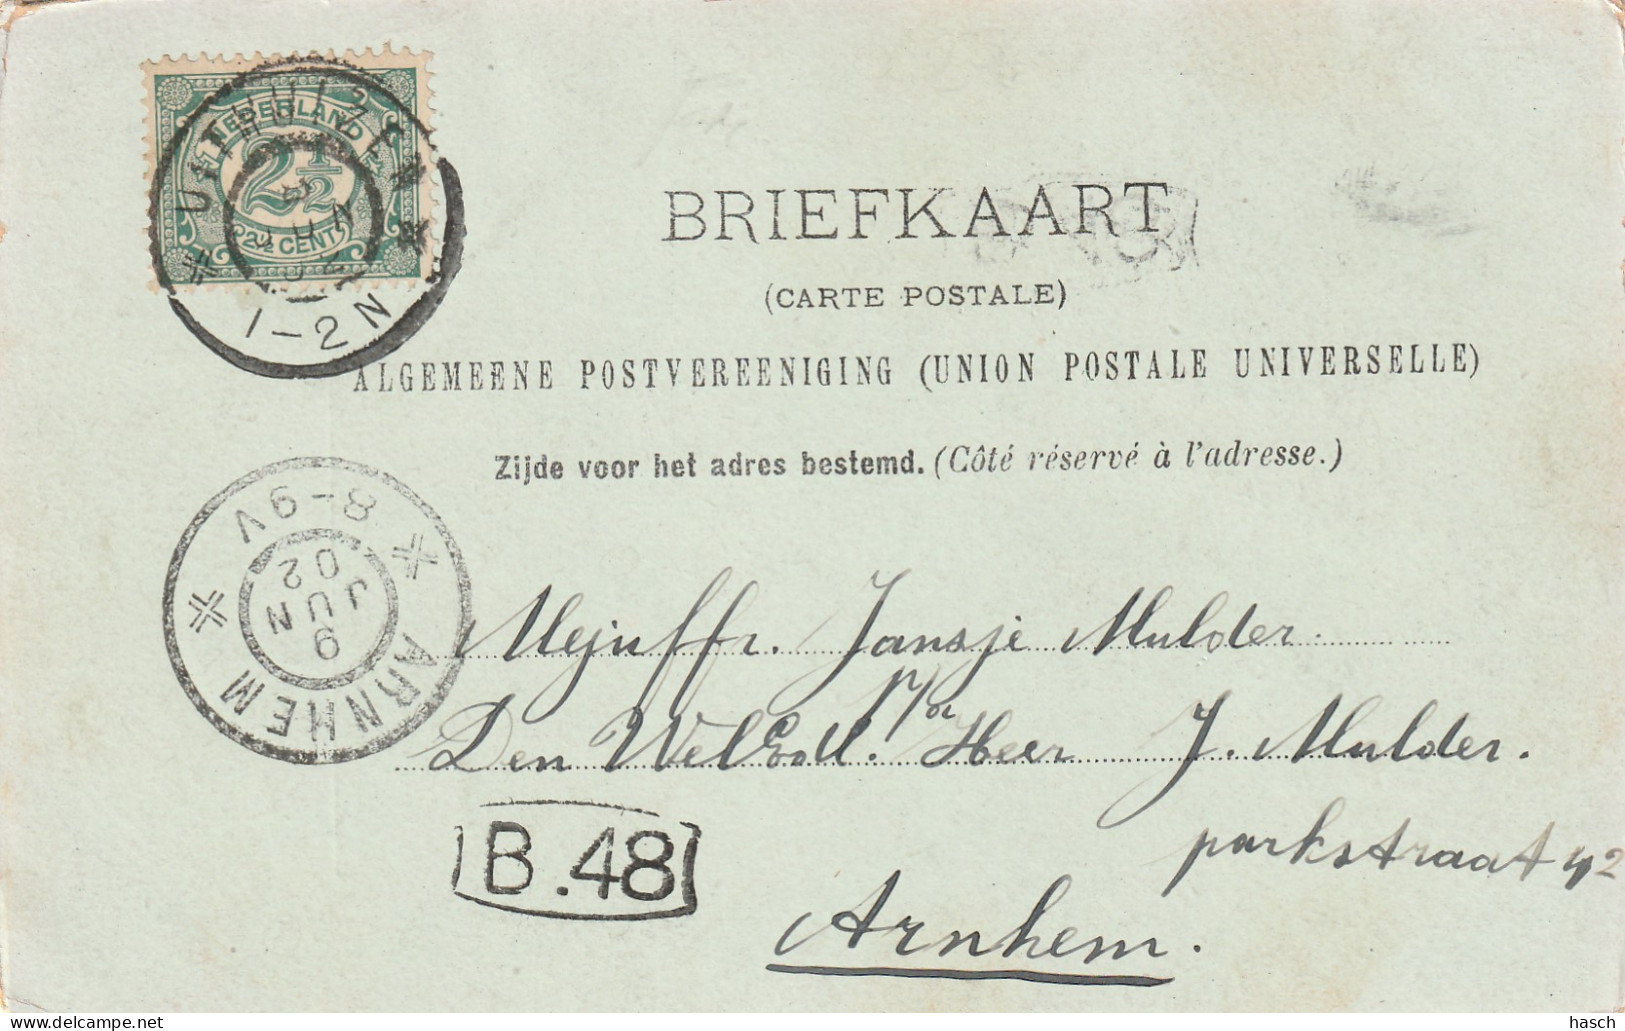 NEDERLAND
2½
2½ CENT
UITHUIZEN
JUN
1-2N
BRIEFKAART
(CARTE POSTALE)
ALGEMEENE POSTVEREENIGING (UNION POSTALE UNIVERSELLE)
Zijde voor het adres bestemd. (Côté réservé à l'adresse.)
ARNHEM
9
JUN
02
8-9V
Mejuffr. Jansje Mulder.
p/a
Den WelEd. Heer J. Mulder.
parkstraat 42
Arnhem.
B.48
hasch
delcampe.net